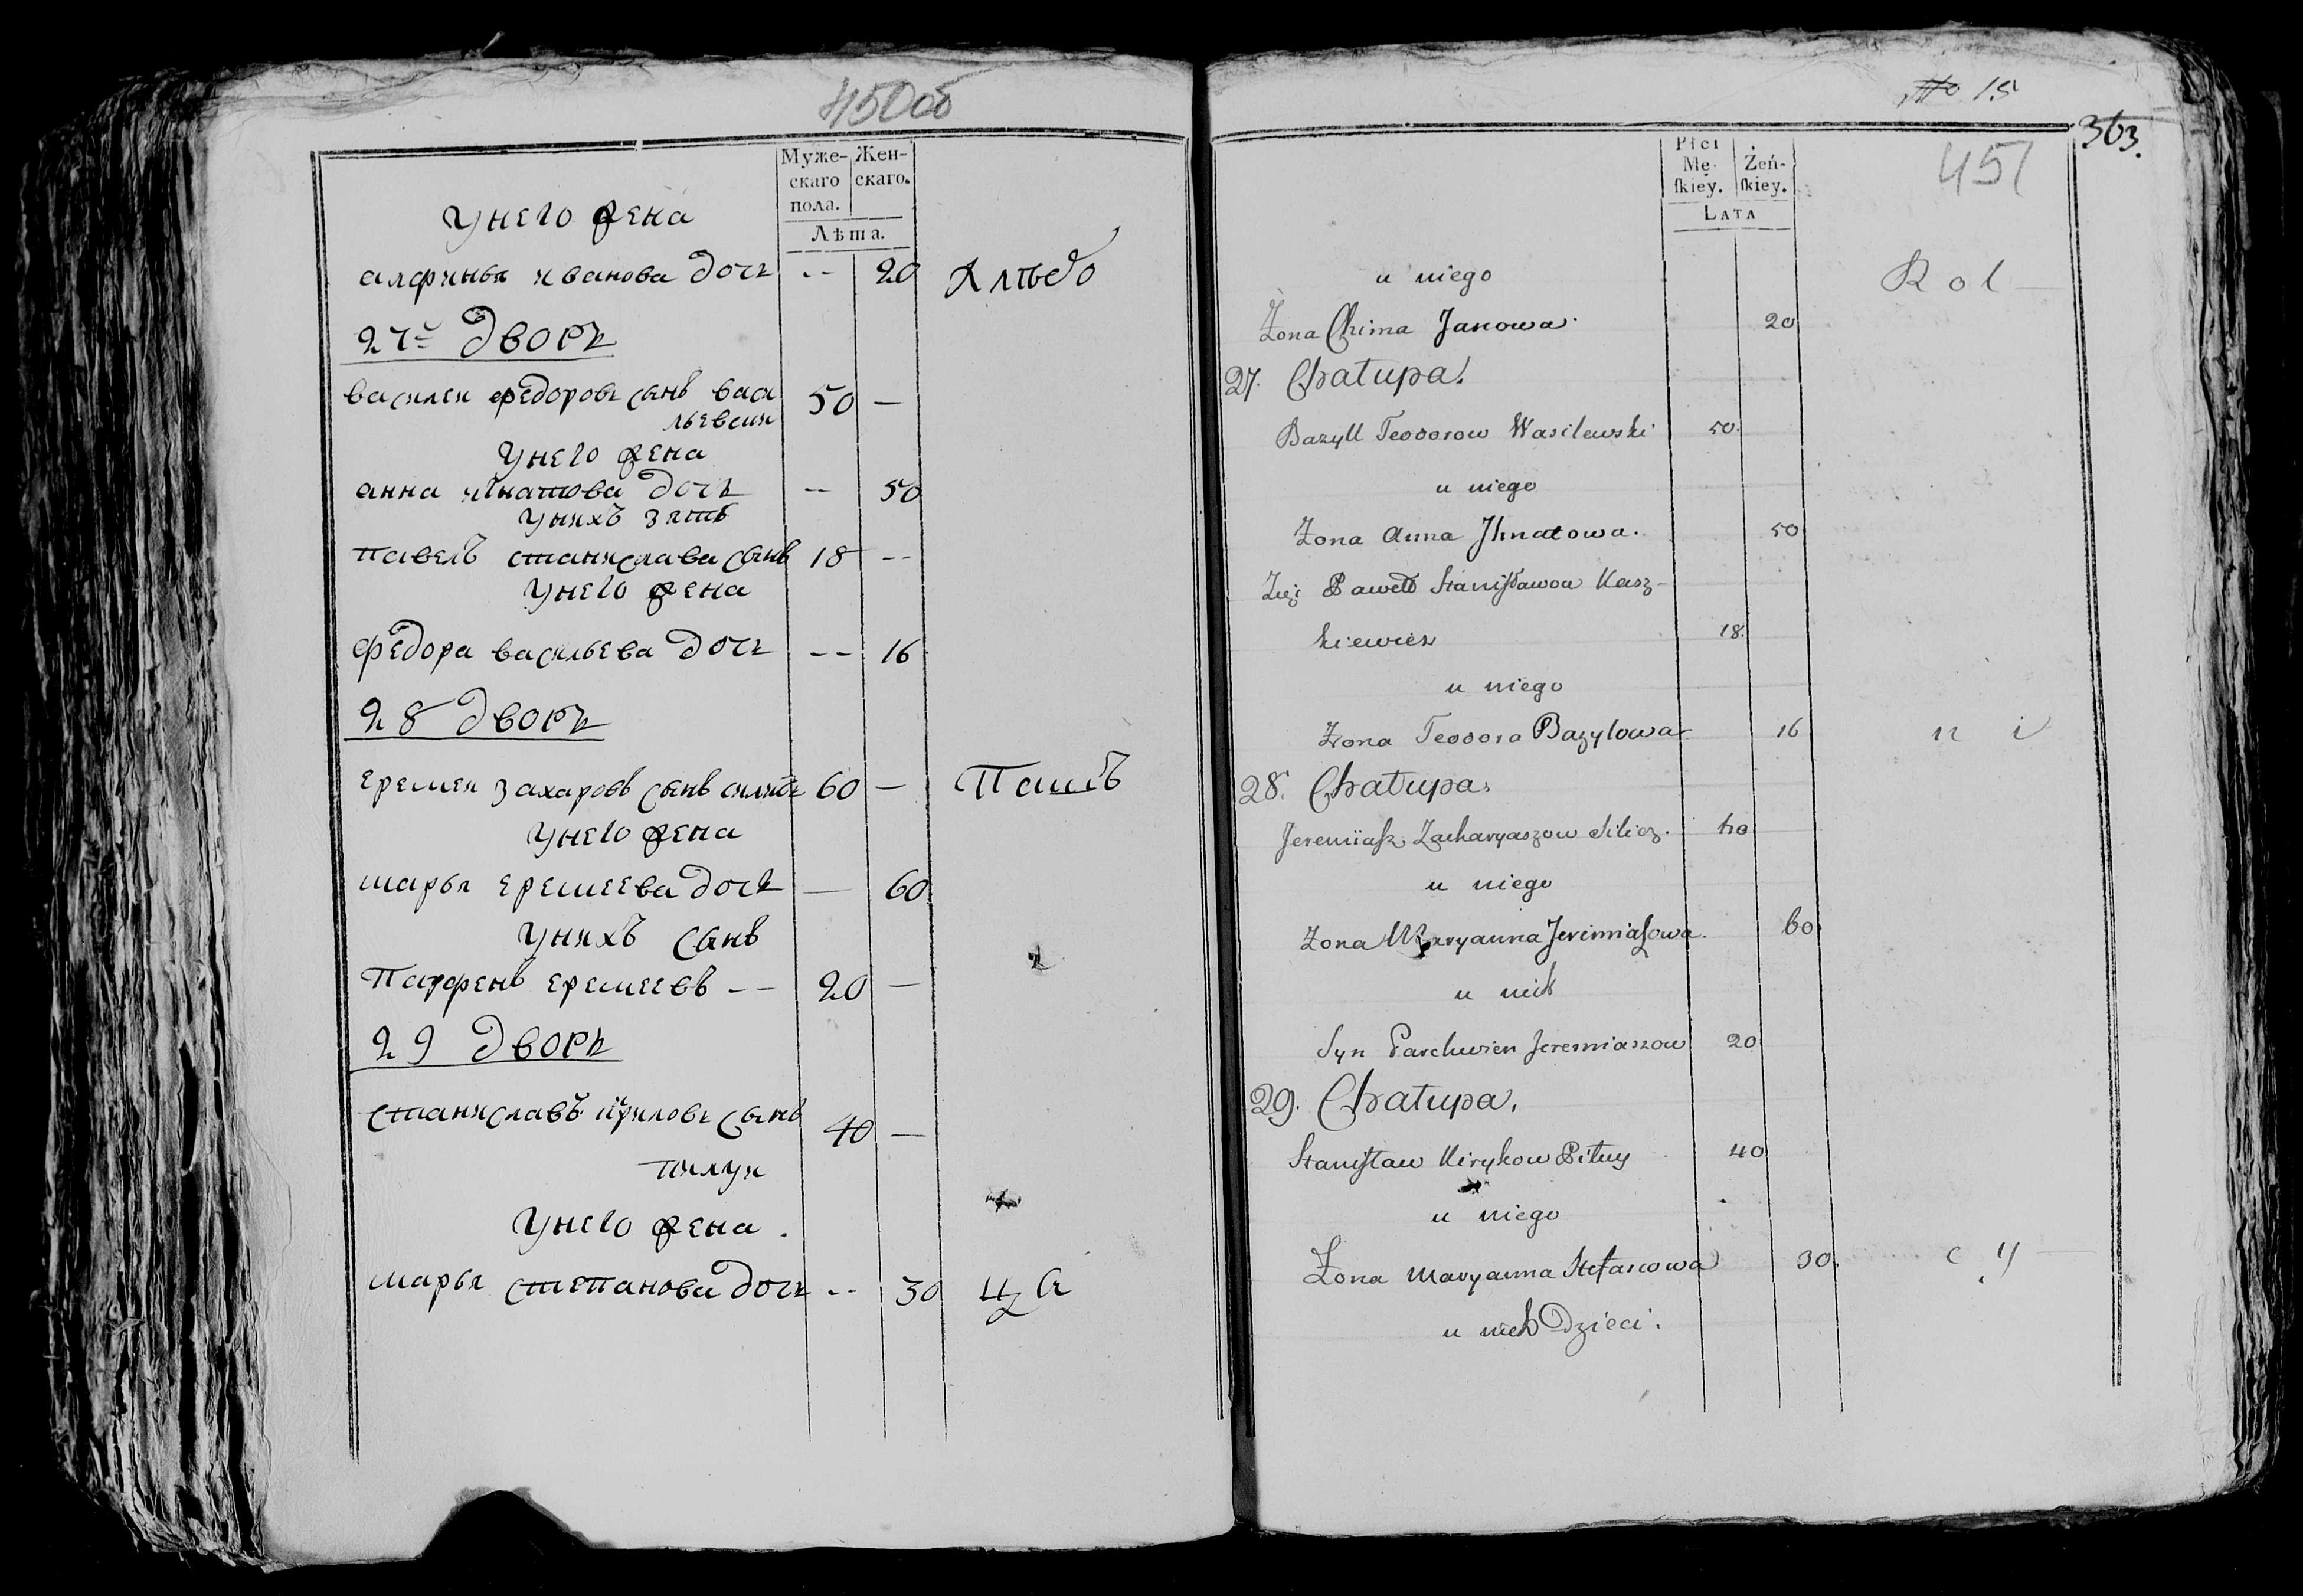 450об
Муже-
скаго
пола.
Жен-
скаго.
Лѣта.
У него жена
алфинья иванова дочь -- 20 Хлѣбо
27й дворъ
василеи федоровъ сынъ васи 50 —
льевски
У него жена
анна игнатова дочь -- 50
У нихъ зять
павелъ станислава сынъ 18 --
У него жена
федора васильева дочь -- 16
28 дворъ
еремеи захаровъ сынъ силичь 60 — Пашъ
У него жена
марья еремеева дочь — 60
У нихъ сынъ
Парфенъ еремеевъ -- 20 —
29 дворъ
станиславъ кириловъ сынъ 40 —
пилуи
У него жена.
марья степанова дочь -- 30 ца
15
363.
451
Płci
Mę-
skiey.
Żeń-
skiey.
LATA
u niego
Rol —
Żona Chima Janowa. 20
27. Chatupa.
Bazyll Teodorow Wasilewski 50.
u niego
Żona Anna Jhnatowa. 50
Zięć Paweł Stanisławow Kasz-
kiewicz 18.
u niego
Żona Teodora Bazylowa 16 n i
28. Chatupa.
Jeremiasz Zacharyaszow Silicz. 60
u niego
Żona Maryanna Jeremiaszowa. 60.
u nich
Syn Parchwien Jeremiaszow 20
29. Chatupa.
Stanisław Kirykow Piłuy 40
u niego
Żona Maryanna Stefanowa 30. c y —
u nich Dzieci.